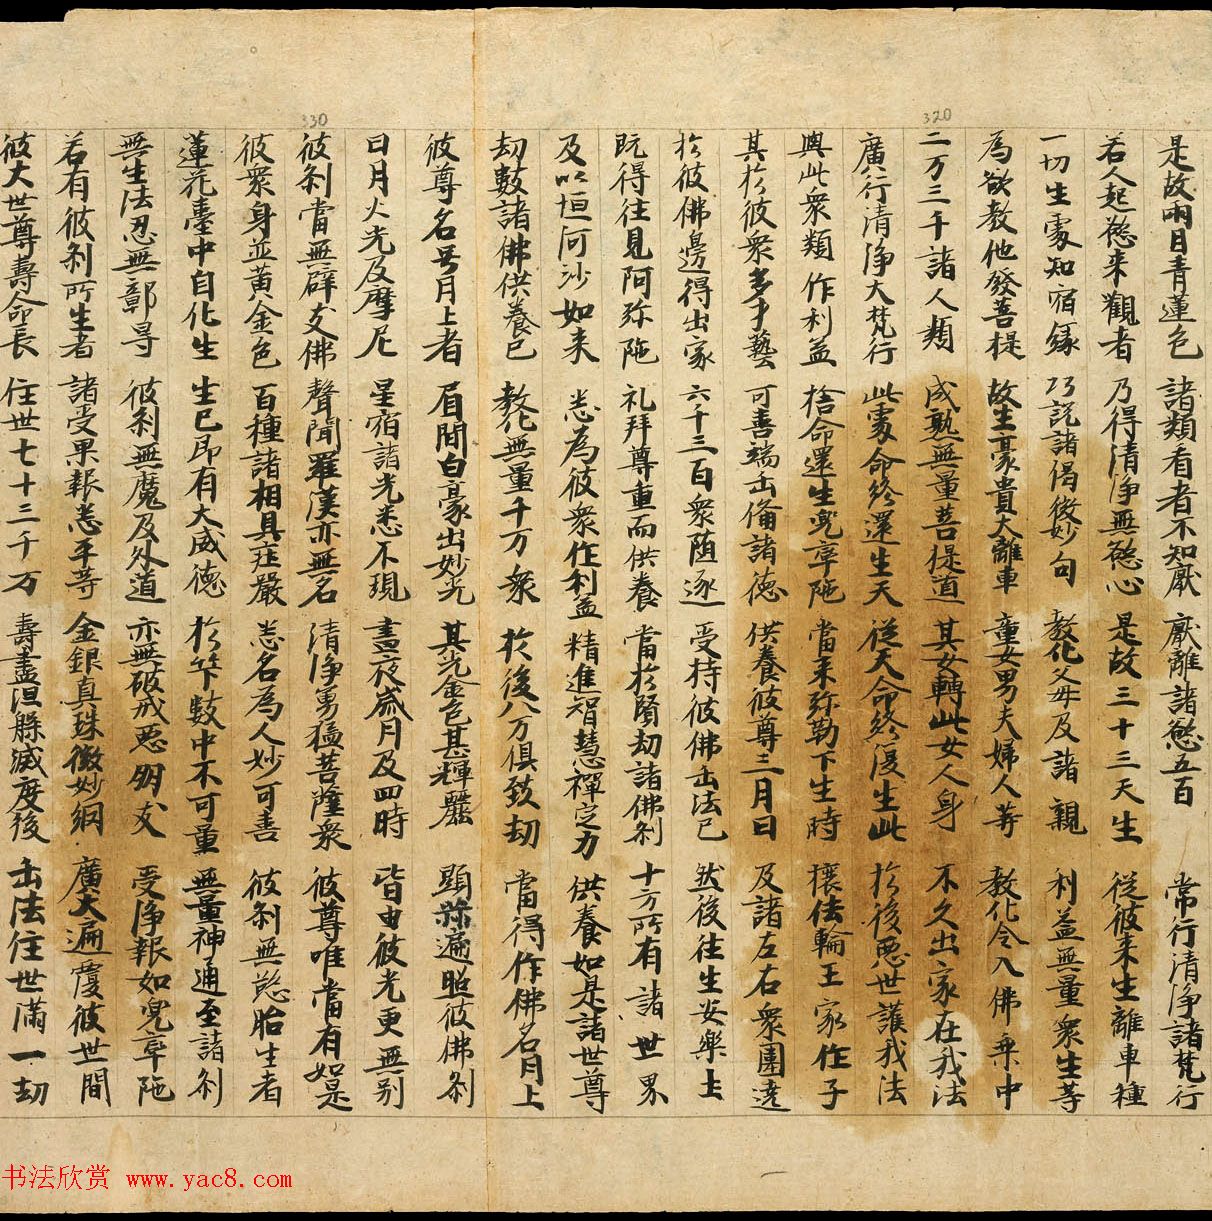 320
330
是故兩目青蓮色 諸類看者不知厭 厭離諸慾五百 常行清淨諸梵行
若人起慾來觀者 乃得清淨無慾心 是故三十三天生 從彼來生離車種
一切生處知宿緣 巧說諸偈微妙句 教化父母及諸親 利益無量衆生等
為欲教他發菩提 故生豪貴大離車 童女男夫婦人等 教化令入佛乘中
二万三千諸人類 成熟無量菩提道 其女轉此女人身 不久出家在我法
廣行清淨大梵行 此處命終還生天 從天命終復生此 於後惡世護我法
與此衆類作利益 捨命還生兜率陁 當來弥勒下生時 穰佉輪王家作子
其於彼衆多才藝 可喜端正備諸德 供養彼尊三月日 及諸左右衆圍遶
於彼佛邊得出家 六千三百衆隨逐 受持彼佛正法已 然後往生安樂土
既得往見阿弥陁 礼拜尊重而供養 當於賢劫諸佛剎 十方所有諸世界
及以恒河沙如來 悉為彼衆作利益 精進智慧禪定力 供養如是諸世尊
劫數諸佛供養已 教化無量千万衆 於後八万俱致劫 當得作佛名月上
彼尊名号月上者 眉間白豪出妙光 其光金色甚輝麗 顯赫遍照彼佛剎
日月火光及摩尼 星宿諸光悉不現 晝夜歲月及四時 皆由彼光更無別
彼剎當無辟支佛 聲聞羅漢亦無名 清淨勇猛菩薩衆 彼尊唯當有如是
彼衆身並黃金色 百種諸相具莊嚴 悉名為人妙可喜 彼剎無慾胎生者
蓮花臺中自化生 生已即有大威德 於竿數中不可量 無量神通至諸剎
無生法忍無鄣㝵 彼剎無魔及外道 亦無破戒惡朋友 受淨報如兜率陁
若有彼剎所生者 諸受果報悉平等 金銀真珠微妙網 廣大遍覆彼世間
彼大世尊壽命長 住世七十三千万 壽盡涅槃滅度後 正法住世滿一劫
书法欣赏 www.yac8.com